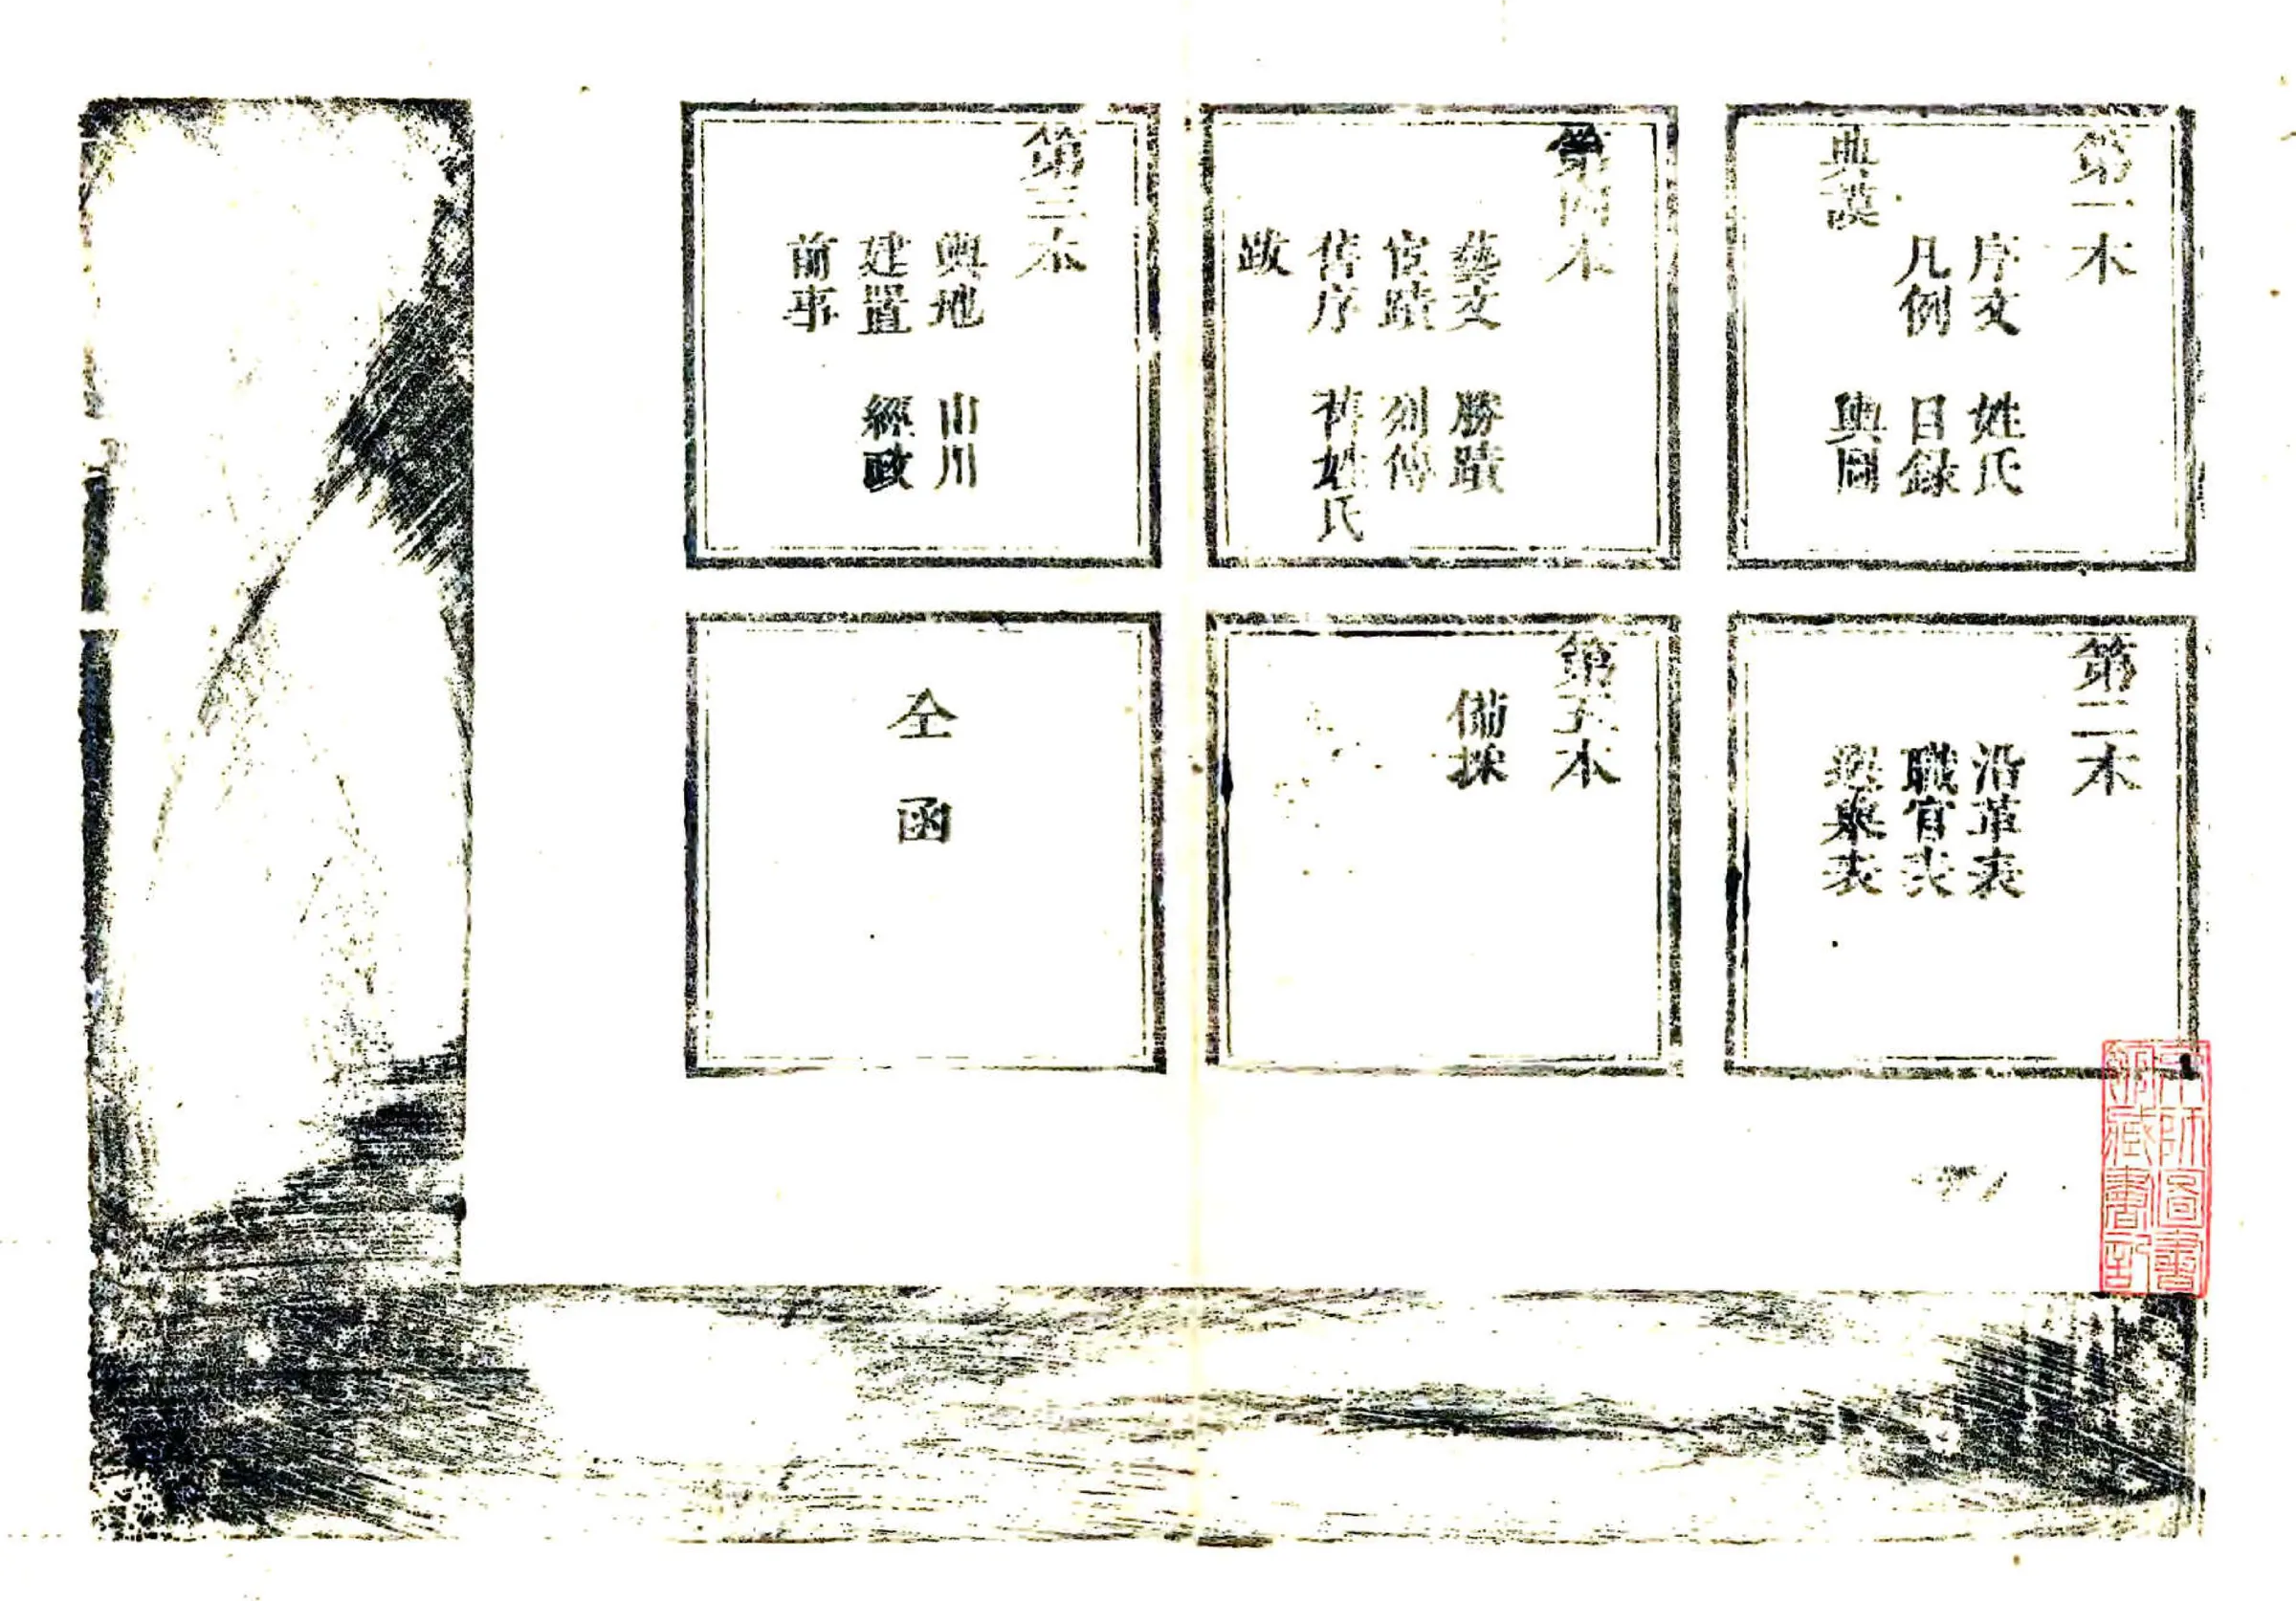 第一本
序文　姓氏
凡例　目録
典謨　輿圖
第二本
沿革表
職官表
選舉表
第三本
輿地　山川
建置　經政
前事
第四本
藝文　勝蹟
宦蹟　列傳
舊序　舊姓氏
跋
第五本
備採
仝函
京師圖書
館藏書記